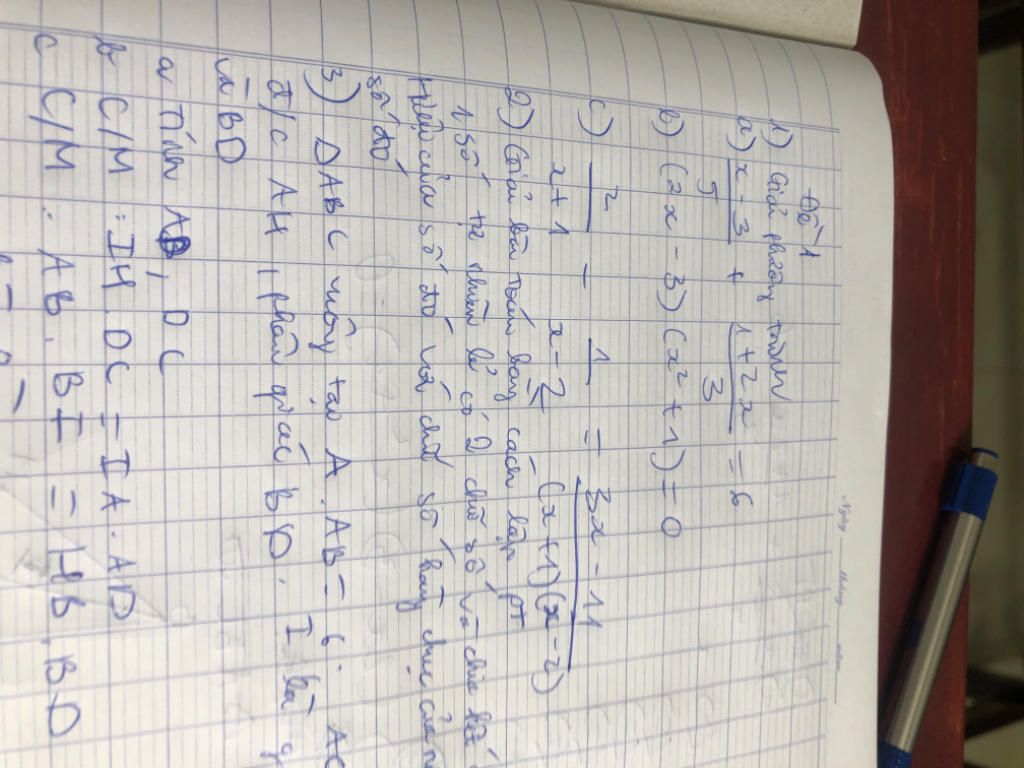 Ngày Tháng
Đề 1
1) Giải phương trình
a) x - 3 / 5 + 1 + 2x / 3 = 6
b) (2x - 3) (x² + 1) = 0
c) 2 / x + 1 - 1 / x - 2 = 3x - 11 / (x + 1)(x - 2)
2) Giải bài toán bằng cách lập pt
1 số tự nhiên lẻ có 2 chữ số và chia hết
Hiệu của số đó và chữ số hàng chục của n
số đó
3) ΔABC vuông tại A. AB = 6. AC
đ/c AH, phân giác BD. I là g
và BD
a Tính AD, DC
b C/M : IH. DC = IA. AD
c C/M : AB. BI = HB. BD